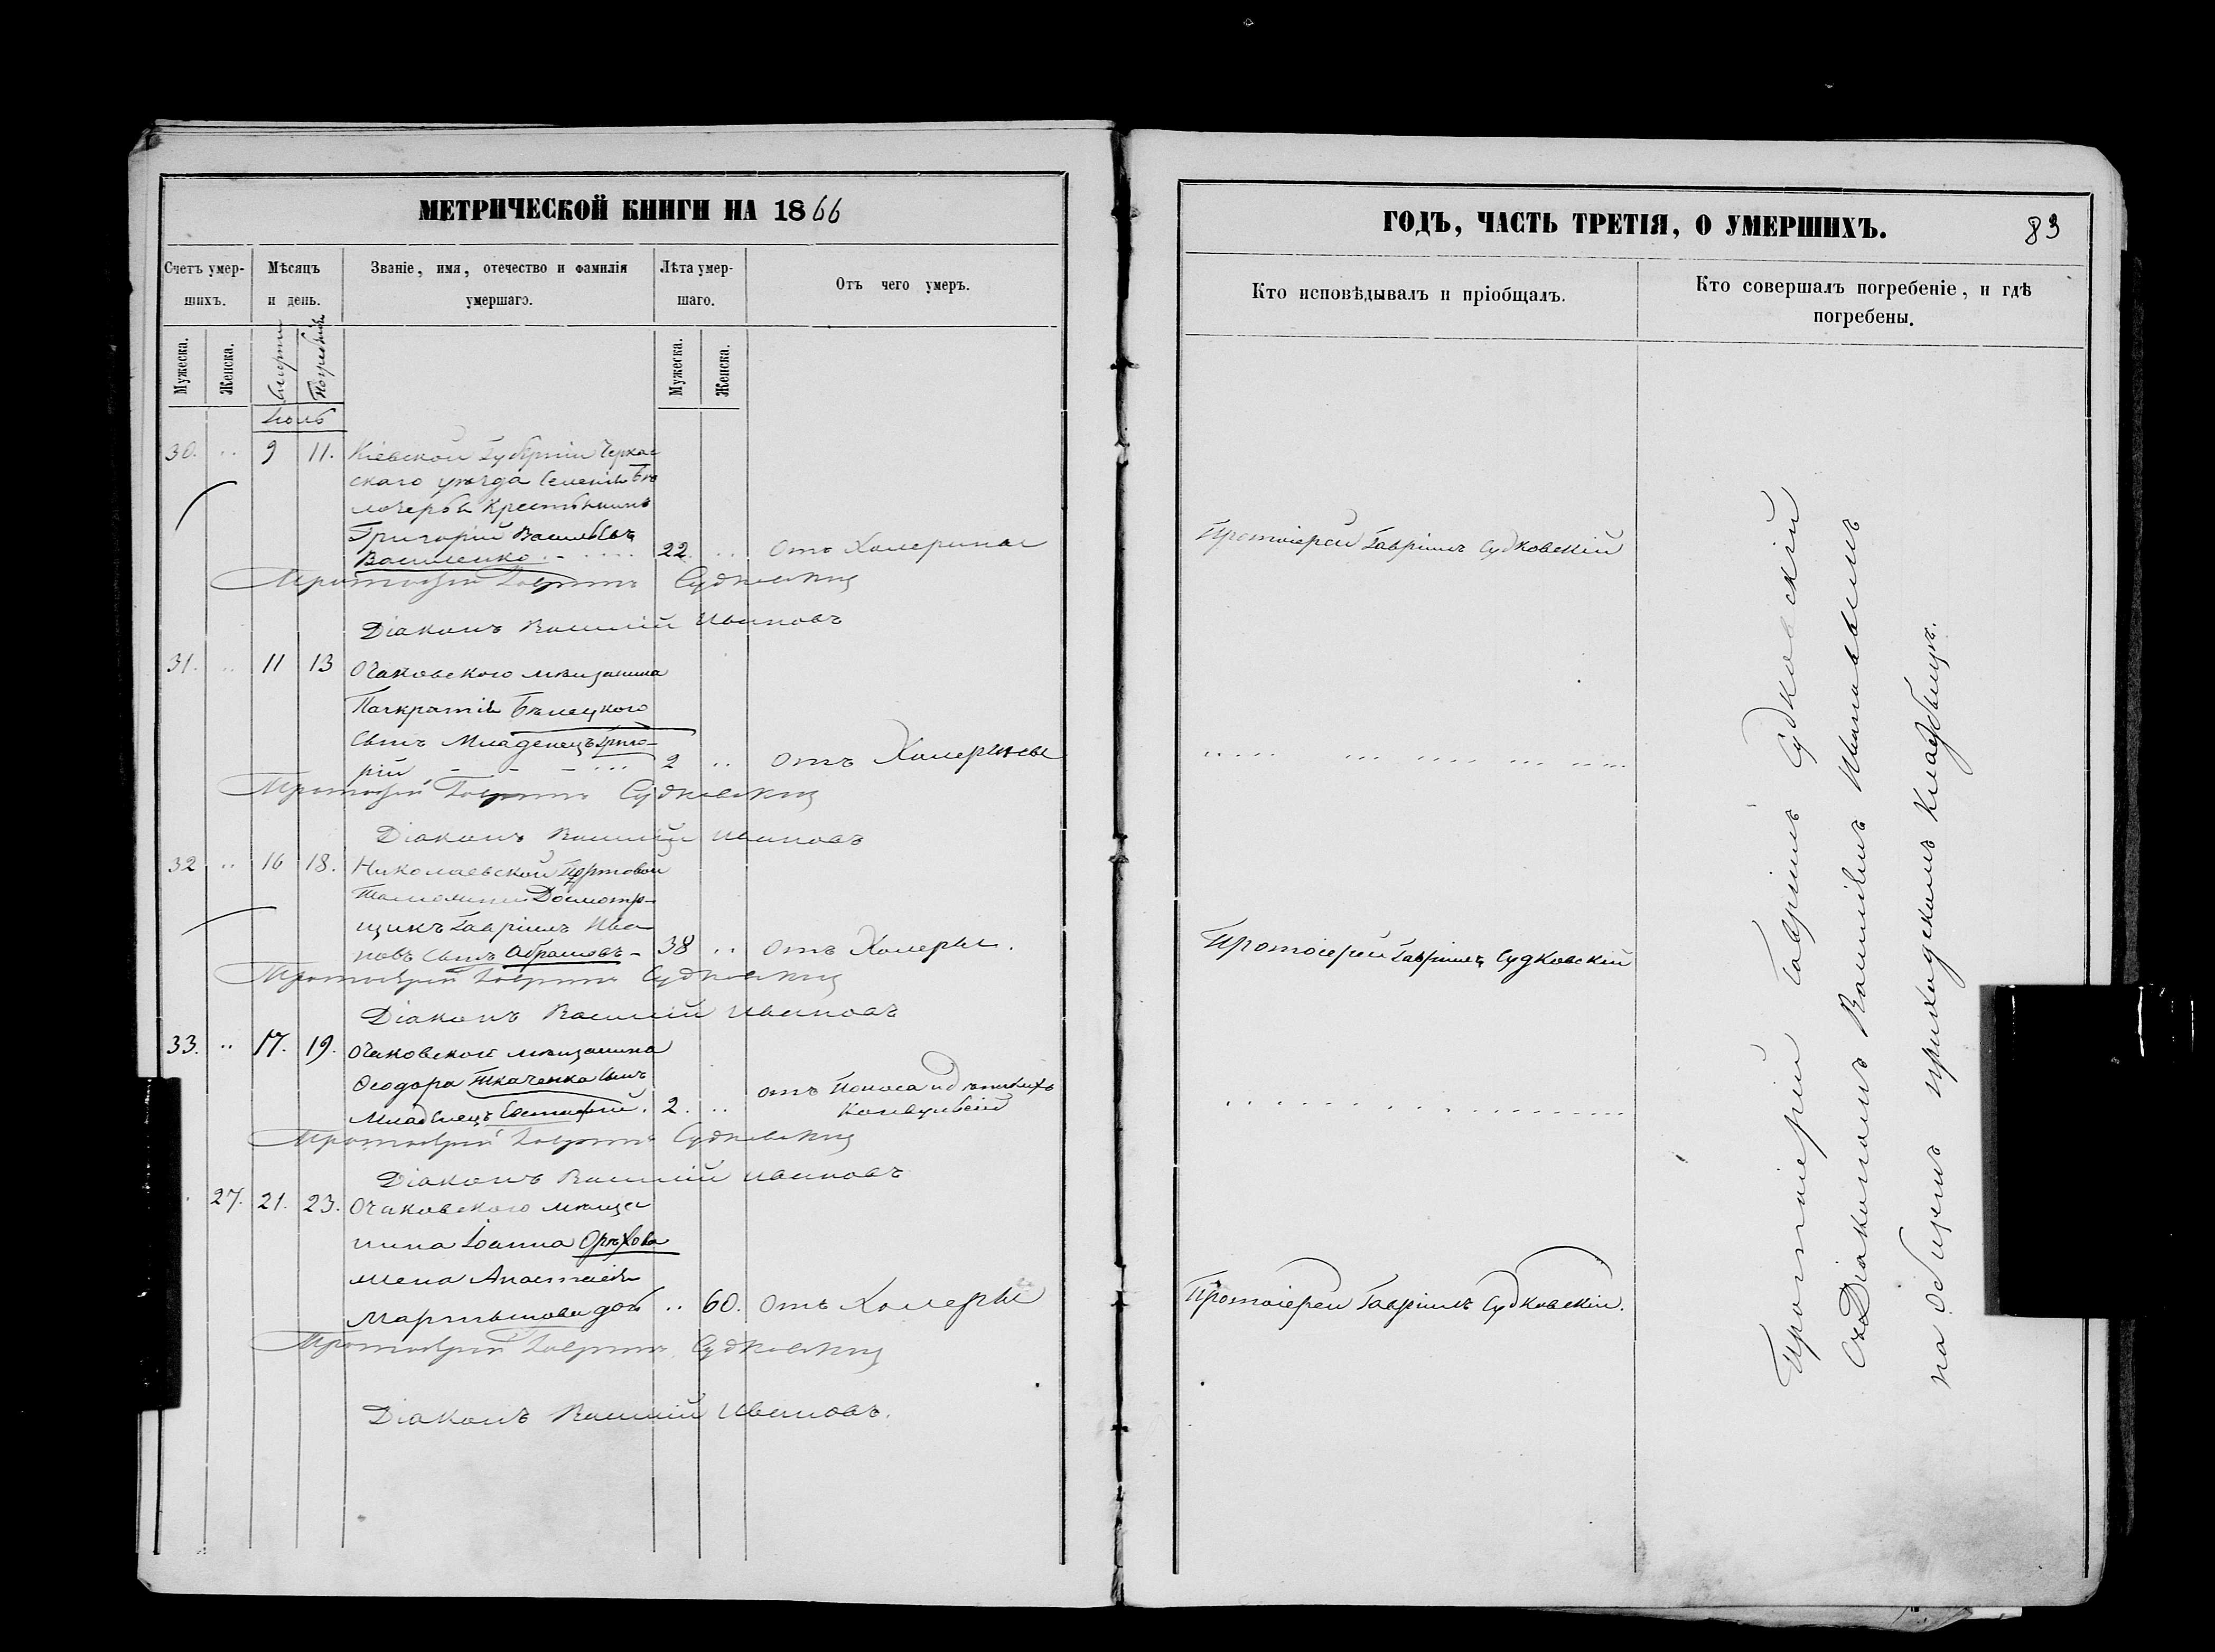 МЕТРИЧЕСКОЙ КНИГИ НА 1866
Счетъ умер-
шихъ.
Мѣсяцъ
и день.
Званіе, имя, отечество и фамилія
умершаго.
Лѣта умер-
шаго.
Отъ чего умеръ.
Мужеска.
Женска.
Смерти
Погребенія
Мужеска.
Женска.
Іюль
30. .. 9 11. Кіевской Губерніи Черкас
скаго уѣзда Селенія Бѣ
лозерья Крестьянинъ
Григорій Васильевъ
Василенко 22. .. отъ Холерины
Протоіерей Гавріилъ Судковскій
Діаконъ Василій Ивановъ
31. .. 11 13 Очаковского мѣщанина
Панкратія Бѣлецкого
сынъ Младенецъ Григо-
рій 2 .. отъ Холерины
Протоіерей Гавріилъ Судковскій
Діаконъ Василій Ивановъ
32 .. 16 18. Николаевской Портовой
Таможни Досмотр-
щикъ Гавріилъ Ива
новъ сынъ Абрамовъ - 38 .. отъ Холеры.
Протоіерей Гавріилъ Судковскій
Діаконъ Василій Ивановъ
33. .. 17. 19. Очаковского мѣщанина
Ѳеодора Ткаченка сынъ
Младенецъ Евстафій. 2. .. отъ Поноса и дѣтскихъ
Конвульсій
Протоіерей Гавріилъ Судковскій
Діаконъ Василій Ивановъ
27. 21. 23. Очаковского мѣща
нина Іоанна Орѣхова
жена Анастасія
Мартынова дочь .. 60. отъ Холеры
Протоіерей Гавріилъ Судковскій
Діаконъ Василій Ивановъ.
ГОДЪ, ЧАСТЬ ТРЕТІЯ, О УМЕРШИХЪ.
83
Кто исповѣдывалъ и пріобщалъ.
Кто совершалъ погребеніе, и гдѣ
погребены.
Протоіерей Гавріилъ Судковскій
Протоіерей Гавріилъ Судковскій
Протоіерей Гавріилъ Судковскій.
Протоіерей Гавріилъ Судковскій
съ Діакономъ Василіемъ Ивановымъ
на общемъ приходскомъ Кладбищѣ.